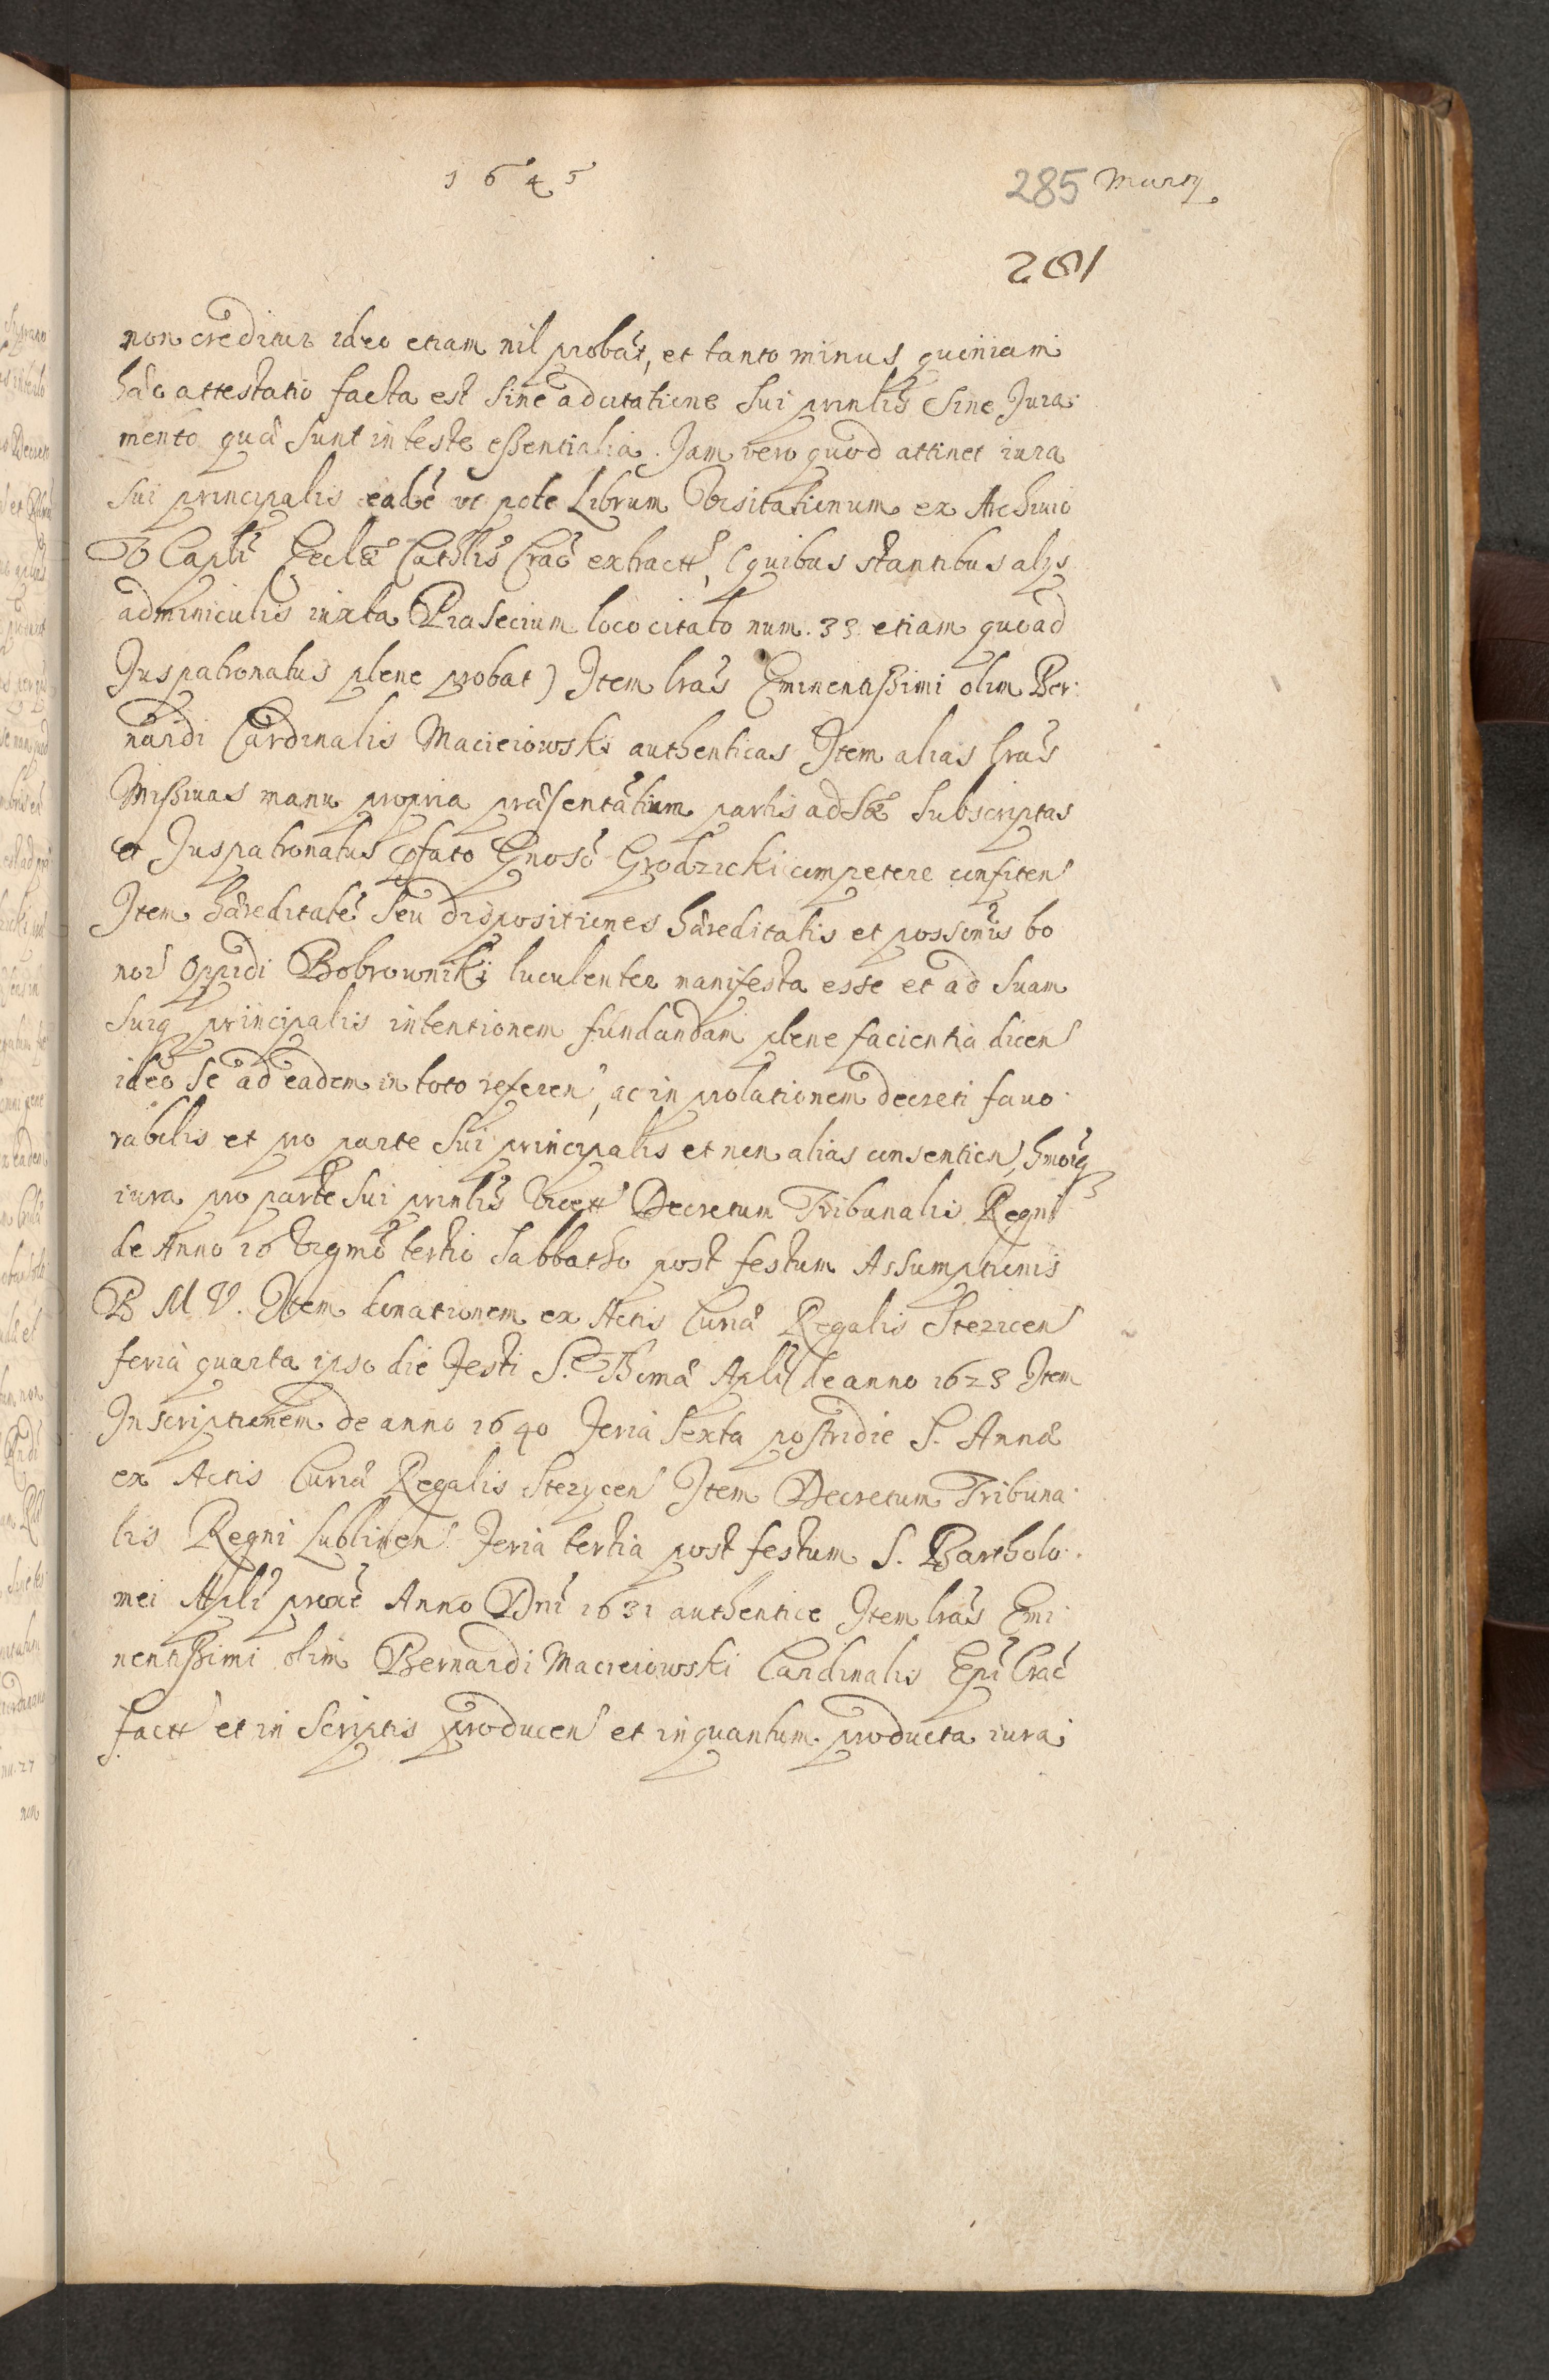 1645
285 Martij
281
non creditur ideo etiam nil probat, et tanto minus quoniam
hæc attestatio facta est sine adcitatione sui prinlis sine Jura-
mento quæ sunt in teste essentialia. Jam vero quod attinet iura
sui principalis ut pote Librum Visitationum ex Archivio
Capli Ecclæ Cathlis Crac extract, (quibus stantibus alijs
adminiculis iuxta Piasecium loco citato num. 33 etiam quoad
Juspatronatus plene probat) Item lras Eminentissimi olim Ber-
nardi Cardinalis Macieiowski authenticas Item alias lras
Missivas manu propria præsentatium partis adstæ subscriptas
et Juspatronatus pfato Gnoso Grodzicki competere confiten
Item hæreditate seu dispositiones hæreditatis et possonis bo
nor Oppidi Bobrowniki luculenter manifesta esse et ad suam
suiq principalis intentionem fundandam plene facientia dicen
ideo se ad eadem in toto referen, ac in prolationem decreti favo-
rabilis et pro parte sui principalis et non alias consentien, hmoiq
iura pro parte sui prinlis vicett Decretum Tribunalis Regni
de Anno 16 Vigmo tertio Sabbatho post festum Assumptionis
B M V. Item donationem ex Actis Curiæ Regalis Stezicen
feria quarta ipso die Festi S. Thomæ Apli de anno 1623 Item
Inscriptionem de anno 1640 Feria sexta postridie S. Annæ
ex Actis Curiæ Regalis Stezycen Item Decretum Tribuna-
lis Regni Lublinen Feria tertia post festum S. Bartholo-
mei Apli proxe Anno Dni 1631 authentice Item lras Emi-
nentissimi olim Bernardi Macieiowski Cardinalis Epi Crac
factt et in scriptis producen et inquantum producta iura